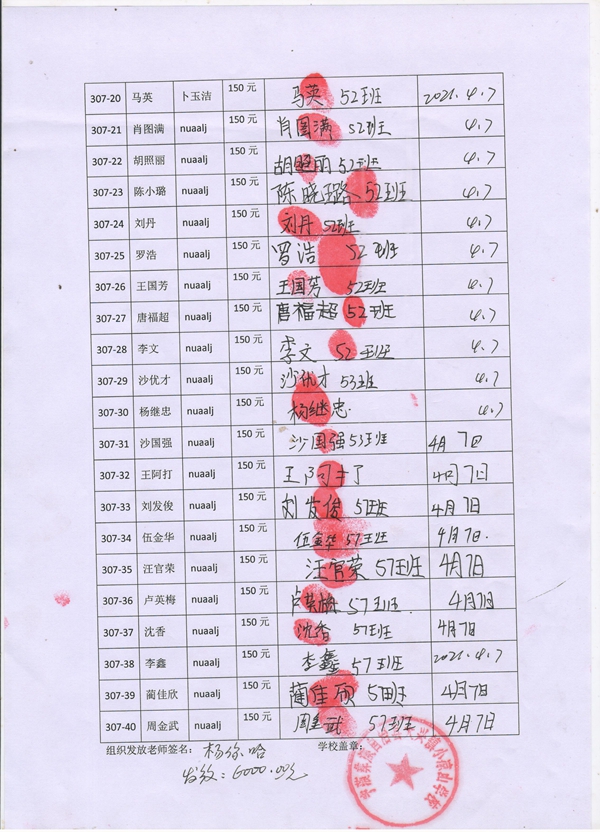 307-20 马英 卜玉洁 150元 马英 52班 2021.4.7
307-21 肖图满 nuaalj 150元 肖图满 52班 4.7
307-22 胡照丽 nuaalj 150元 胡照丽 52班 4.7
307-23 陈小璐 nuaalj 150元 陈晓璐 52班 4.7
307-24 刘丹 nuaalj 150元 刘丹 52班 4.7
307-25 罗浩 nuaalj 150元 罗浩 52班 4.7
307-26 王国芳 nuaalj 150元 王国芳 52班 4.7
307-27 唐福超 nuaalj 150元 唐福超 52班 4.7
307-28 李文 nuaalj 150元 李文 52班 4.7
307-29 沙优才 nuaalj 150元 沙优才 53班 4.7
307-30 杨继忠 nuaalj 150元 杨继忠 4.7
307-31 沙国强 nuaalj 150元 沙国强 53班 4月7日
307-32 王阿打 nuaalj 150元 王阿打 4月7日
307-33 刘发俊 nuaalj 150元 刘发俊 57班 4月7日
307-34 伍金华 nuaalj 150元 伍金华 57班 4月7日.
307-35 汪官荣 nuaalj 150元 汪官荣 57班 4月7日
307-36 卢英梅 nuaalj 150元 卢英梅 57班 4月7日
307-37 沈香 nuaalj 150元 沈香 57班 4月7日
307-38 李鑫 nuaalj 150元 李鑫 57班 2021.4.7
307-39 蔺佳欣 nuaalj 150元 蔺佳欣 57班 4月7日
307-40 周金武 nuaalj 150元 周金武 57班 4月7日
组织发放老师签名： 学校盖章：
发放：6000.00元